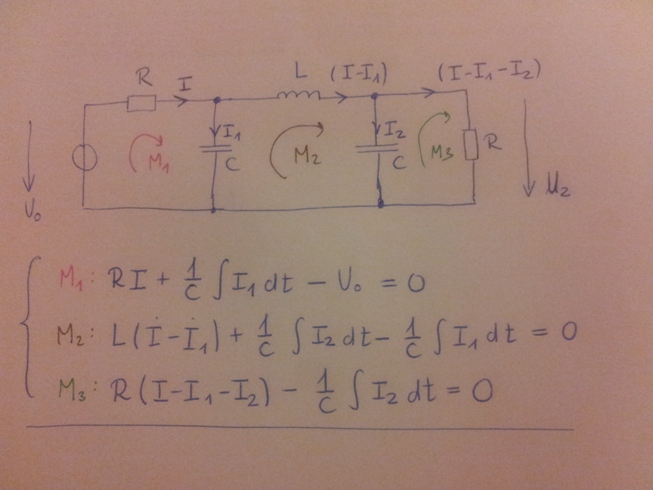 R I L (I-I₁) (I-I₁-I₂)
I₁ I₂
M₁ M₂ M₃ R
C C
U₀ U₂
M₁: RI + 1/C ∫ I₁ dt - U₀ = 0
M₂: L(İ-İ₁) + 1/C ∫ I₂ dt - 1/C ∫ I₁ dt = 0
M₃: R(I-I₁-I₂) - 1/C ∫ I₂ dt = 0